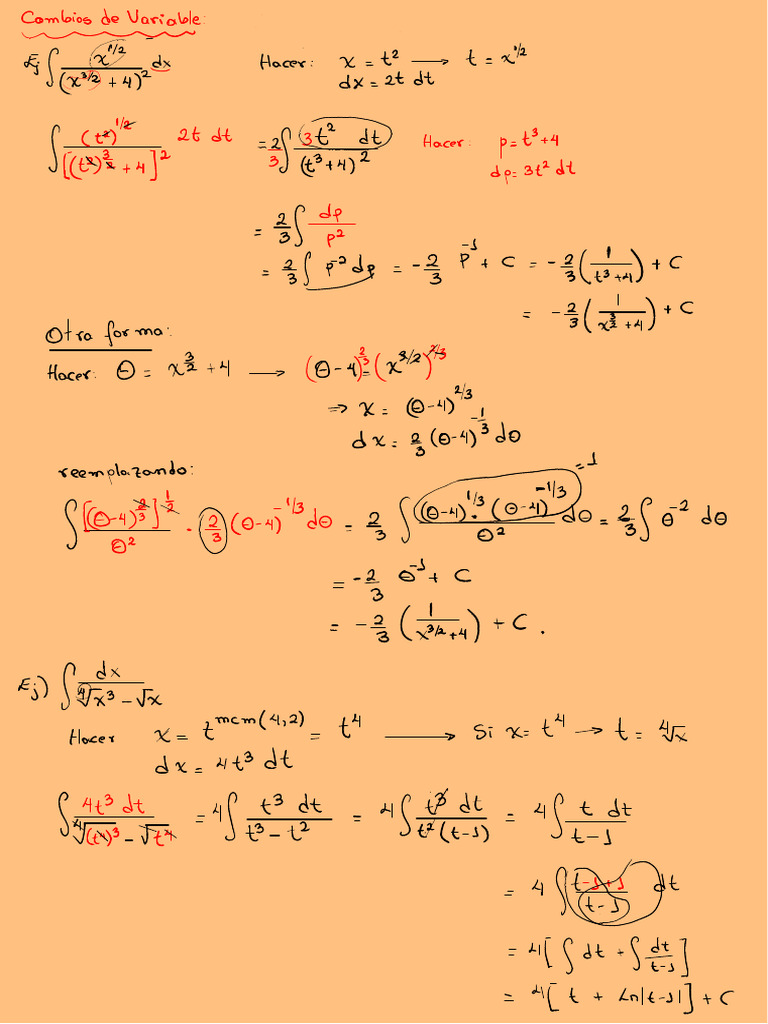 Cambios de Variable:
Ej ∫ x^{1/2} / (x^{3/2} + 4)^2 dx   Hacer: x = t^2 ⟶ t = x^{1/2}
dx = 2t dt
∫ (t^2)^{1/2} / [(t^2)^{3/2} + 4]^2 2t dt = 2/3 ∫ 3t^2 dt / (t^3 + 4)^2   Hacer: p = t^3 + 4
dp = 3t^2 dt
= 2/3 ∫ dp / p^2
= 2/3 ∫ p^{-2} dp = -2/3 p^{-1} + C = -2/3 (1 / (t^3 + 4)) + C
= -2/3 (1 / (x^{3/2} + 4)) + C
Otra forma:
Hacer: θ = x^{3/2} + 4 ⟶ (θ-4)^{2/3} = (x^{3/2})^{2/3}
⇒ x = (θ-4)^{2/3}
dx = 2/3 (θ-4)^{-1/3} dθ
reemplazando:
∫ [(θ-4)^{2/3}]^{1/2} / θ^2 · 2/3 (θ-4)^{-1/3} dθ = 2/3 ∫ (θ-4)^{1/3} · (θ-4)^{-1/3} / θ^2 dθ = 2/3 ∫ θ^{-2} dθ   =1
= -2/3 θ^{-1} + C
= -2/3 (1 / (x^{3/2} + 4)) + C.
Ej) ∫ dx / (∜x^3 - √x)
Hacer x = t^{mcm(4,2)} = t^4 ⟶ Si x = t^4 ⟶ t = ∜x
dx = 4t^3 dt
∫ 4t^3 dt / (∜(t^4)^3 - √t^4) = 4 ∫ t^3 dt / (t^3 - t^2) = 4 ∫ t^3 dt / (t^2 (t-1)) = 4 ∫ t dt / (t-1)
= 4 ∫ (t-1+1) / (t-1) dt
= 4 [∫ dt + ∫ dt / (t-1)]
= 4 [t + Ln|t-1|] + C